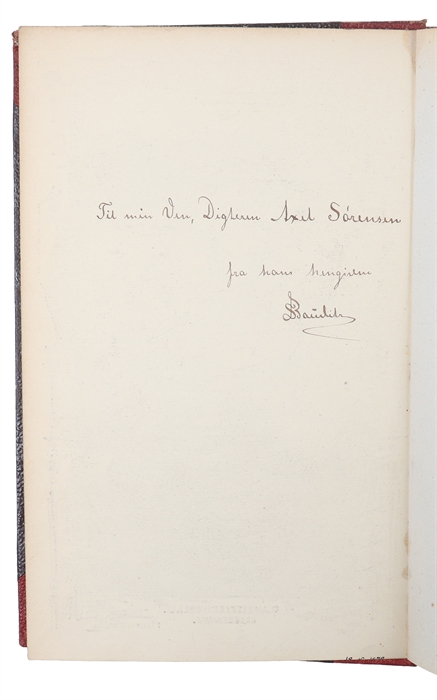 Til min Ven, Digteren Axel Sörensen
fra hans hengivne